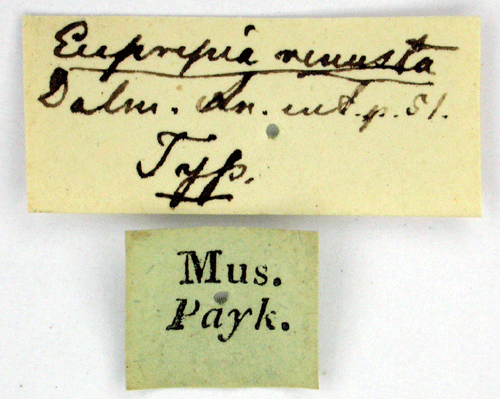 Euprepia venusta
Dalm. An. ent. p. 51.
Typ.
Mus.
Payk.